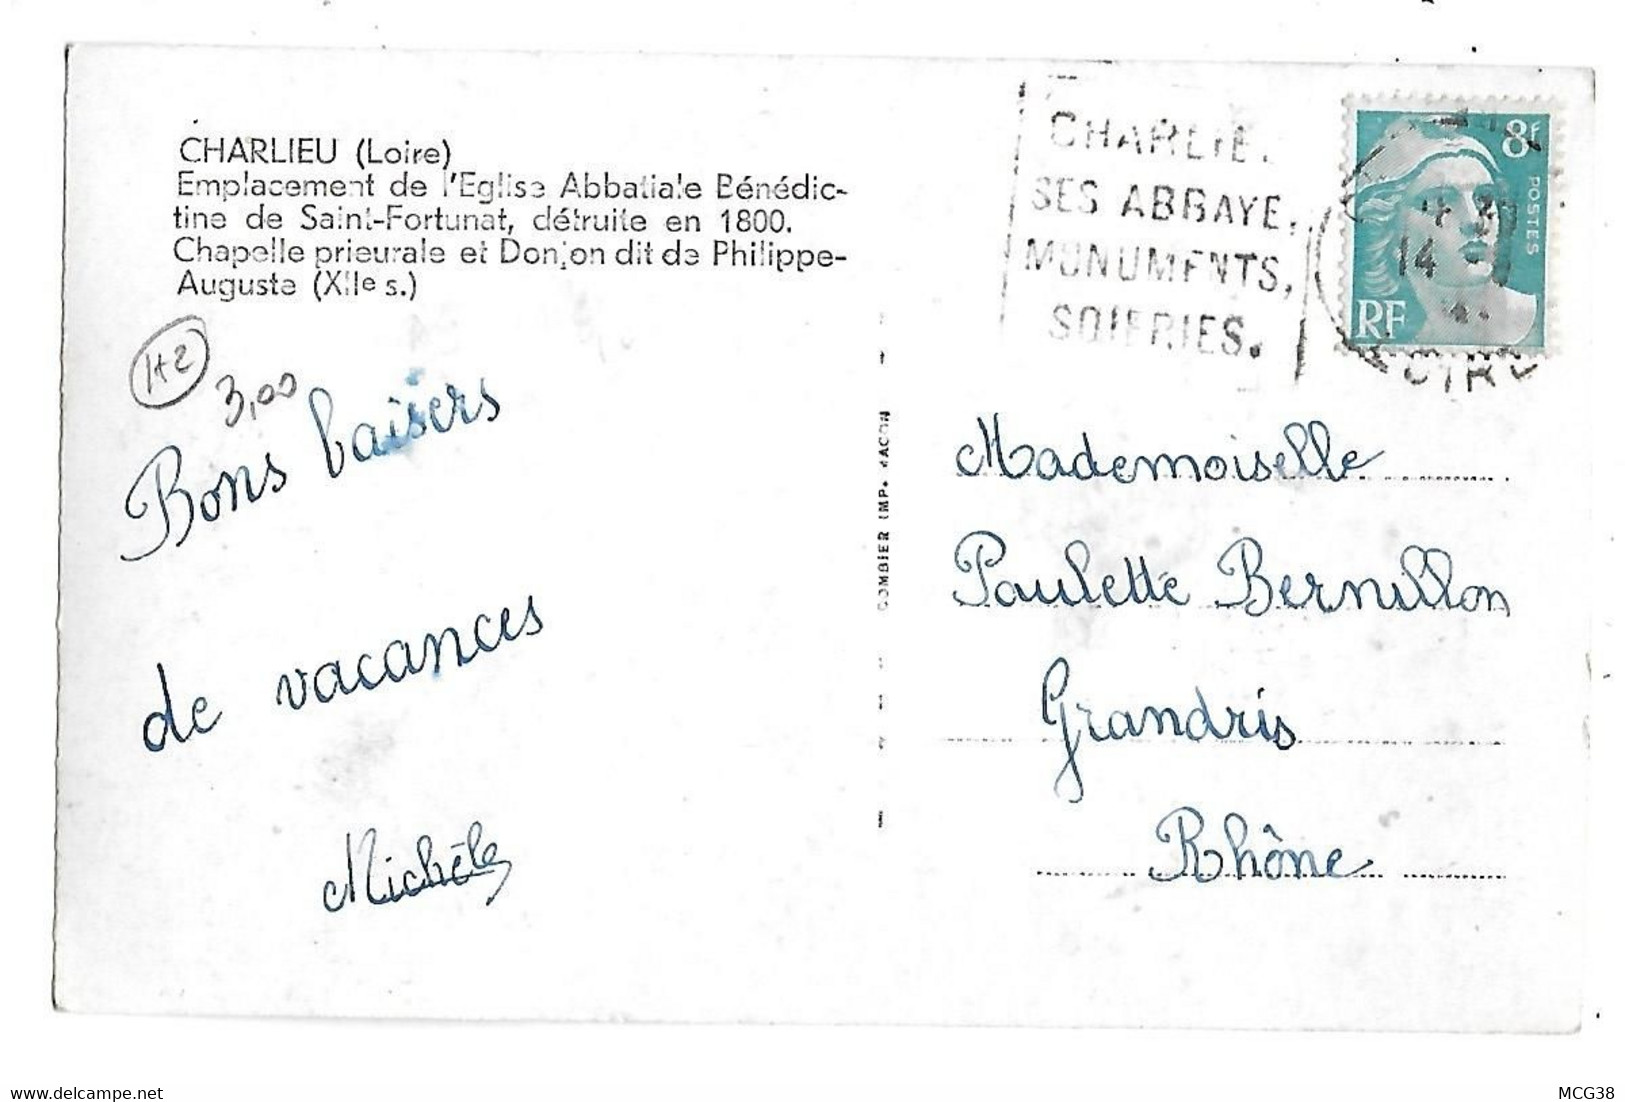 CHARLIEU (Loire)
Emplacement de l'Eglise Abbatiale Bénédic-
tine de Saint-Fortunat, détruite en 1800.
Chapelle prieurale et Donjon dit de Philippe-
Auguste (XIIe s.)
H2
3,00
Bons baisers
de vacances
Michèle
COMBIER IMP. MACON
CHARLIE.
SES ABBAYE,
MONUMENTS,
SOIERIES.
8f
POSTES
RF
14
Mademoiselle
Paulette Bernillon
Grandris
Rhône
delcampe.net
MCG38